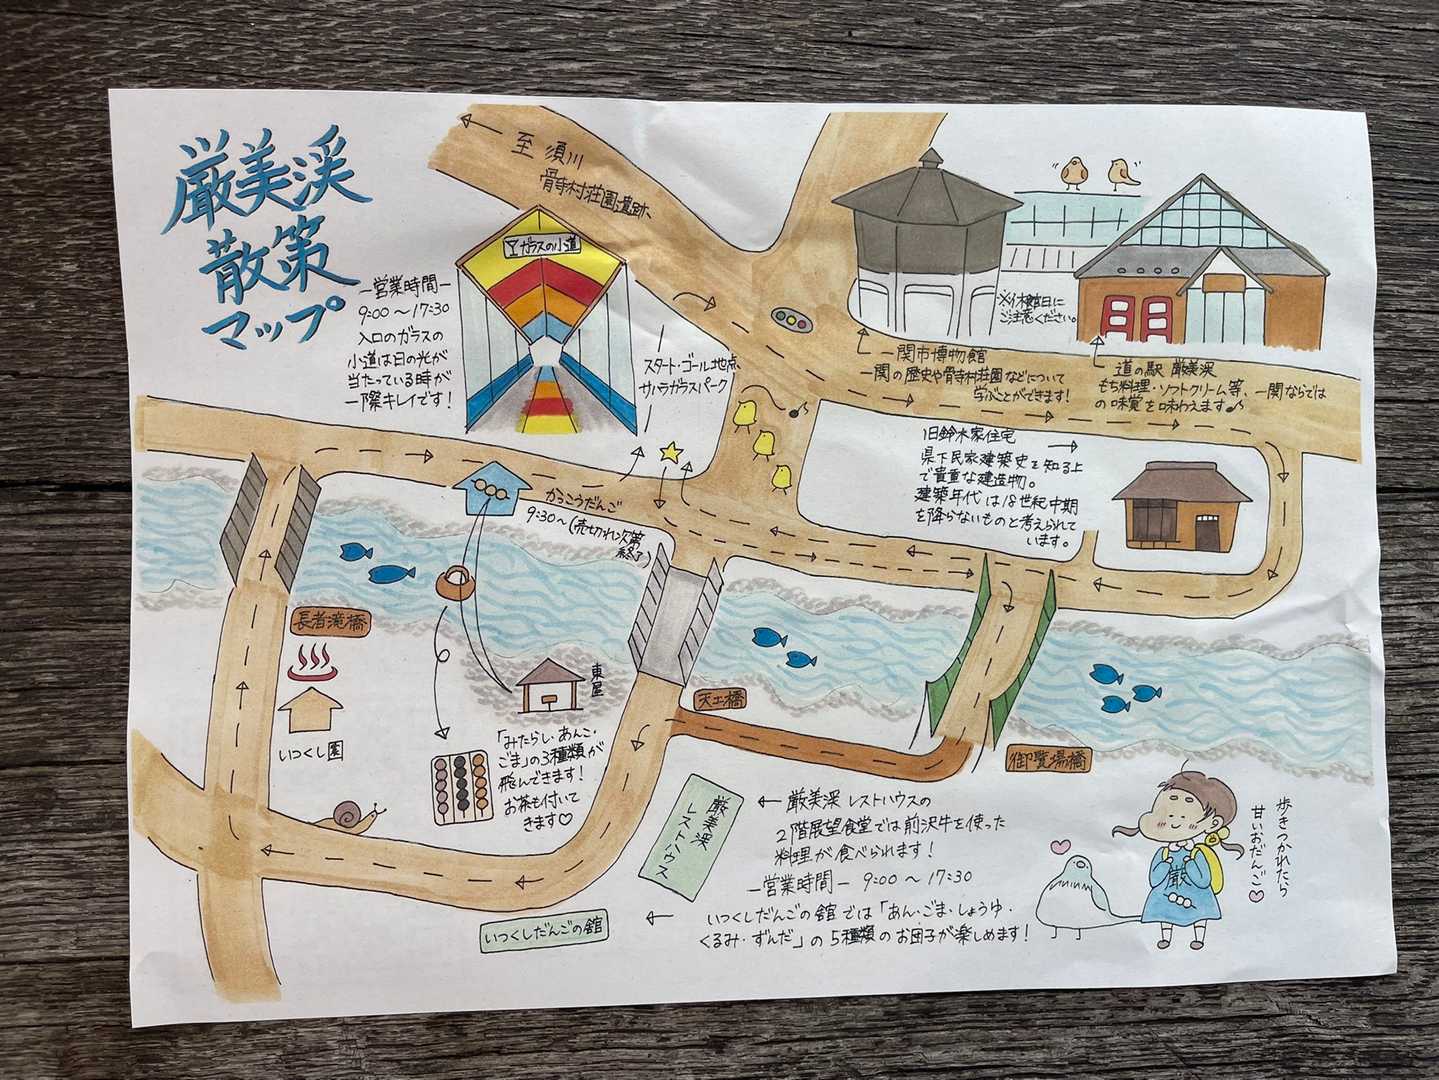 厳美渓
散策
マップ
至 須川
骨寺村荘園遺跡
ガラスの小道
ー営業時間ー
9:00～17:30
入口のガラスの
小道は日の光が
当たっている時が
一際キレイです!
スタート・ゴール地点、
サハラガラスパーク
※休館日に
ご注意ください。
一関市博物館
一関の歴史や骨寺村荘園などについて
学ぶことができます!
道の駅 厳美渓
もち料理・ソフトクリーム等、一関ならでは
の味覚を味わえます♪
旧鈴木家住宅
県下民家建築史を知る上
で貴重な建造物。
建築年代は18世紀中期
を降らないものと考えられて
います。
かっこうだんご
9:30～(売切れ次第
終了)
長者滝橋
いつくし園
東屋
「みたらし・あんこ・
ごま」の3種類が
飛んできます!
お茶も付いて
きます♡
天工橋
御覧場橋
厳美渓
レストハウス
←厳美渓レストハウスの
2階展望食堂では前沢牛を使った
料理が食べられます!
ー営業時間ー 9:00～17:30
いつくしだんごの館
← いつくしだんごの館では「あん・ごま・しょうゆ・
くるみ・ずんだ」の5種類のお団子が楽しめます!
歩きつかれたら
甘いおだんご♡
厳